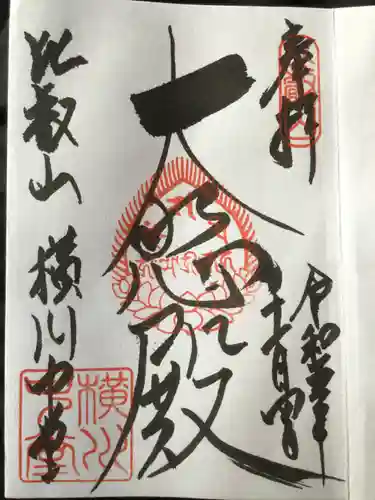 奉拝
令和
十一月
大悲殿
比叡山 横川中堂
横川中堂